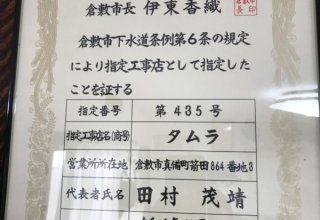 倉敷市長 伊東香織
倉敷市下水道条例第6条の規定
により指定工事店として指定した
ことを証する
指定番号 第435号
指定工事店名(商号) タムラ
営業所所在地 倉敷市真備町箭田864番地3
代表者氏名 田村茂靖